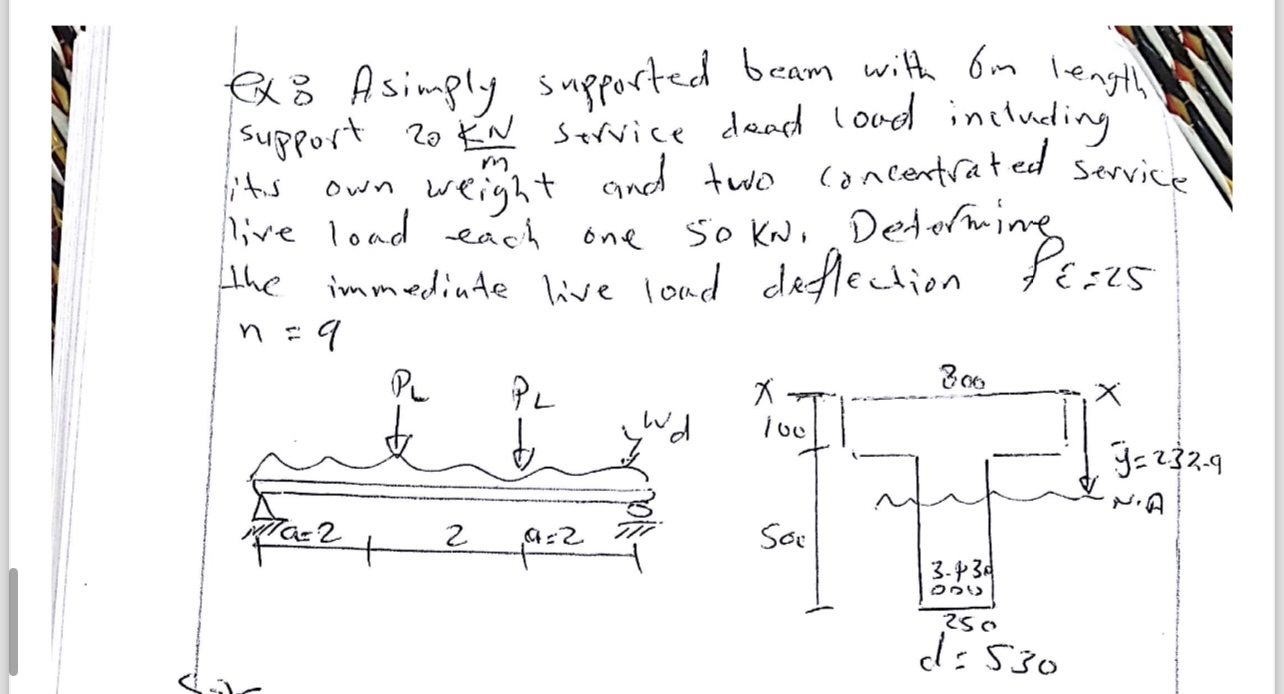 ex: A simply supported beam with 6m length
support 20 KN/m service dead load including
it,s own weight and two concentrated service
live load each one 50 KN. Determine
the immediate live load deflection f'c=25
n = 9
PL PL Wd
a=2 2 a=2
800
X X
100
ȳ=232.9
N.A
500
3-φ30
250
d = 530